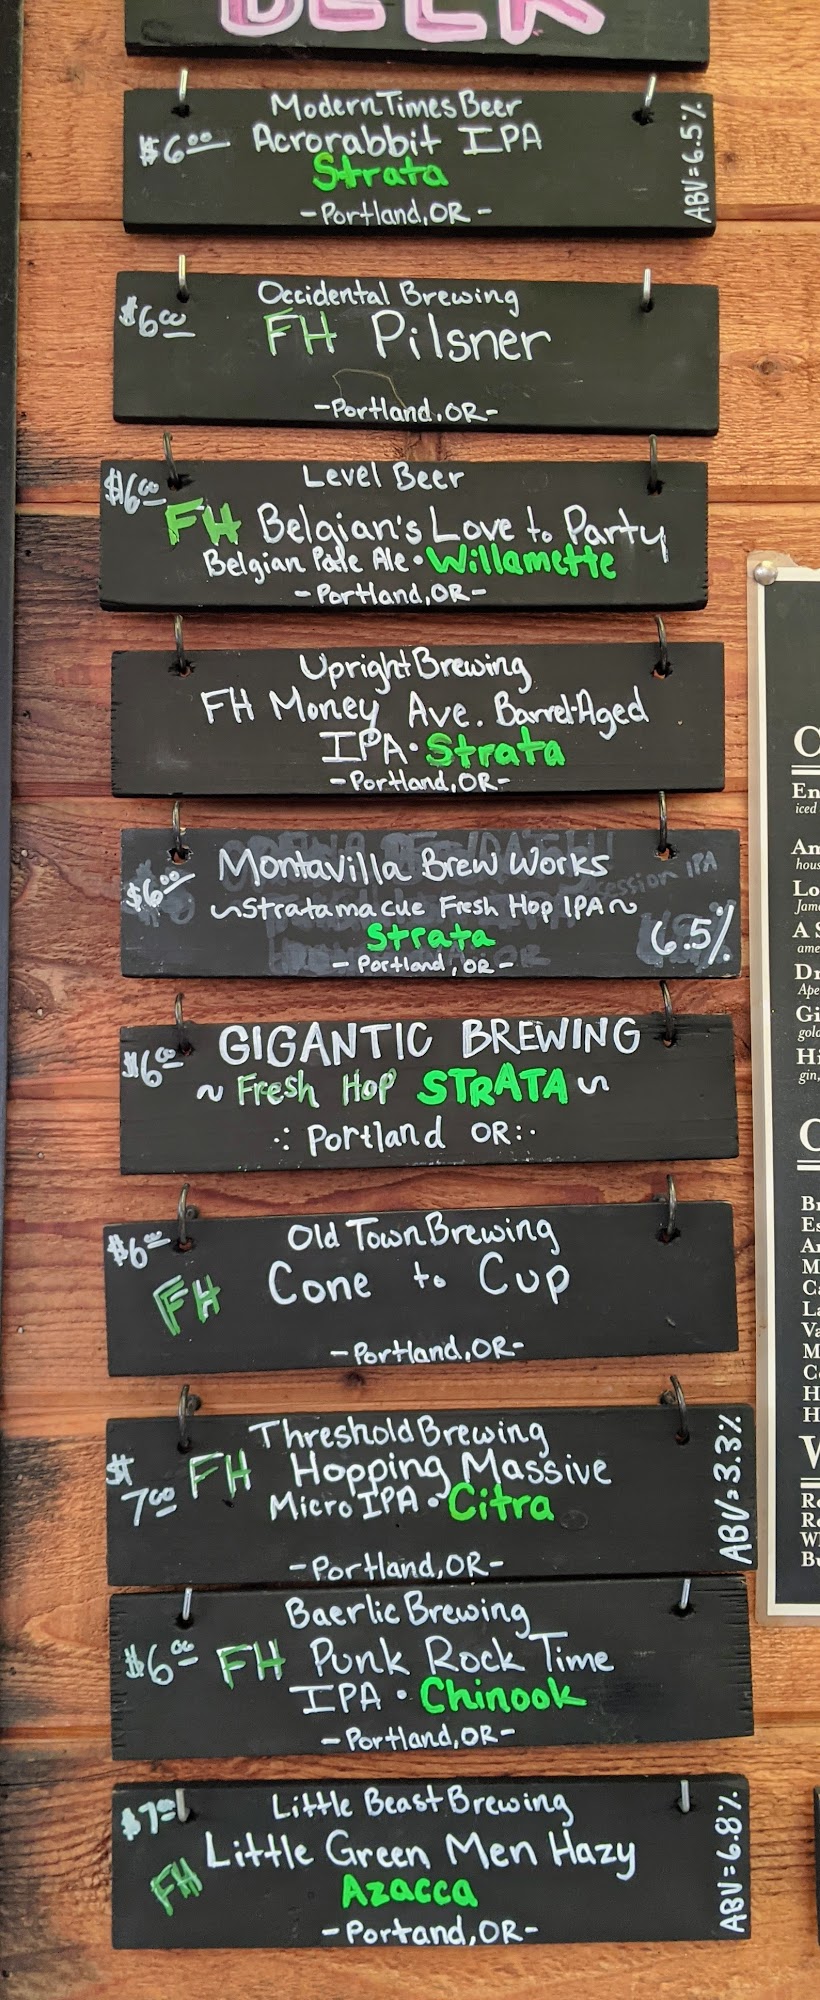 BEER
Modern Times Beer
$6.00 Acrorabbit IPA
Strata
-Portland, OR-
ABV=6.5%
Occidental Brewing
$6.00 FH Pilsner
-Portland, OR-
Level Beer
$6.00
FH Belgian's Love to Party
Belgian Pale Ale • Willamette
-Portland, OR-
Upright Brewing
FH Money Ave. Barrel-Aged
IPA • Strata
-Portland, OR-
Montavilla Brew Works
$6.00
~Stratamacue Fresh Hop IPA~
Strata
6.5%
- Portland, OR -
GIGANTIC BREWING
$6.00
~ Fresh Hop STRATA ~
Portland OR
Old Town Brewing
$6.00
FH Cone to Cup
-Portland, OR-
Threshold Brewing
$7.00 FH Hopping Massive
Micro IPA • Citra
-Portland, OR-
ABV=3.3%
Baerlic Brewing
$6.00 FH Punk Rock Time
IPA • Chinook
-Portland, OR-
Little Beast Brewing
$7.00
FH Little Green Men Hazy
Azacca
-Portand, OR-
ABV=6.8%